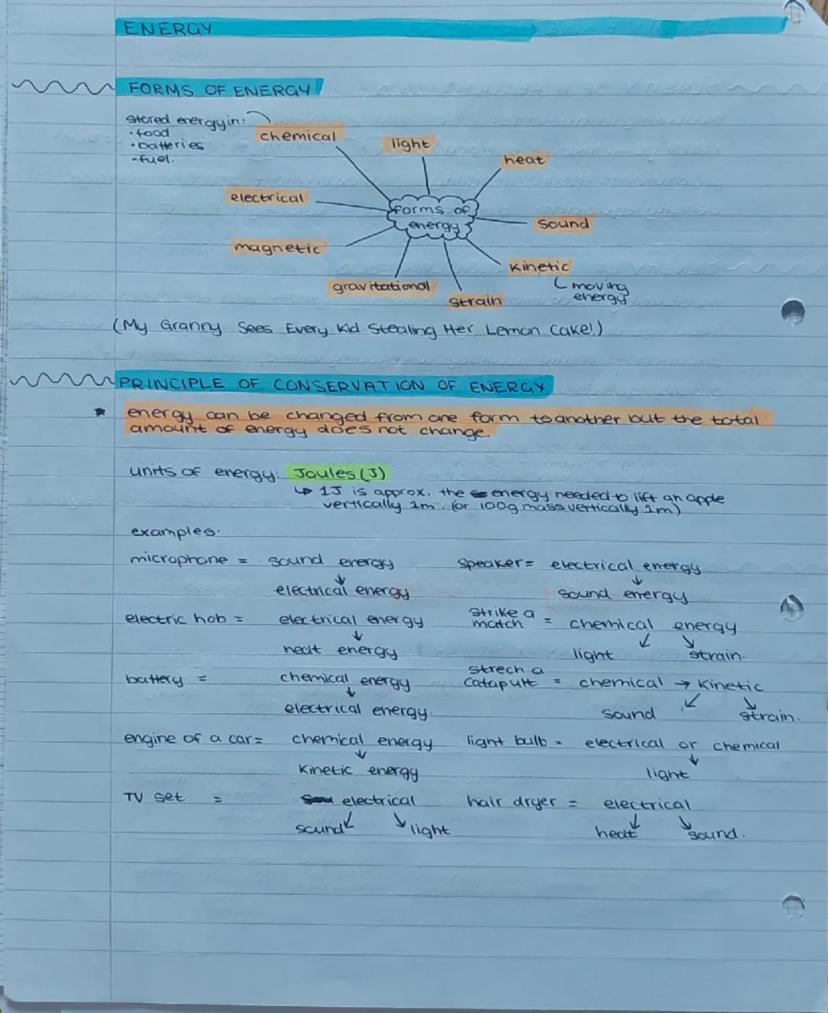 ENERGY
FORMS OF ENERGY
stored energy in:
• food
• batteries
• fuel.
chemical
light
heat
electrical
forms of
energy
sound
magnetic
kinetic
moving
energy
gravitational
strain
(My Granny Sees Every Kid Stealing Her Lemon Cake!)
PRINCIPLE OF CONSERVATION OF ENERGY
* energy can be changed from one form to another but the total
amount of energy does not change.
units of energy: Joules (J)
↳ 1J is approx. the energy needed to lift an apple
vertically 1m. (or 100g mass vertically 1m)
examples:
microphone = sound energy
↓
electrical energy
speaker = electrical energy
↓
sound energy
electric hob = electrical energy
↓
heat energy
strike a
match = chemical energy
↙ ↘
light strain.
battery = chemical energy
↓
electrical energy.
strech a
catapult = chemical → kinetic
↙ ↘
sound strain.
engine of a car = chemical energy
↓
kinetic energy
light bulb = electrical or chemical
↓
light
TV set = electrical
↙ ↘
sound light
hair dryer = electrical
↙ ↘
heat sound.